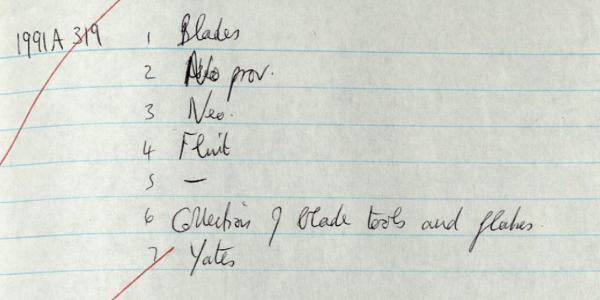 1991A 319 1 Blades
2 prov.
3 Neo.
4 Flint
5 —
6 Collection of blade tools and flakes.
7 Yates